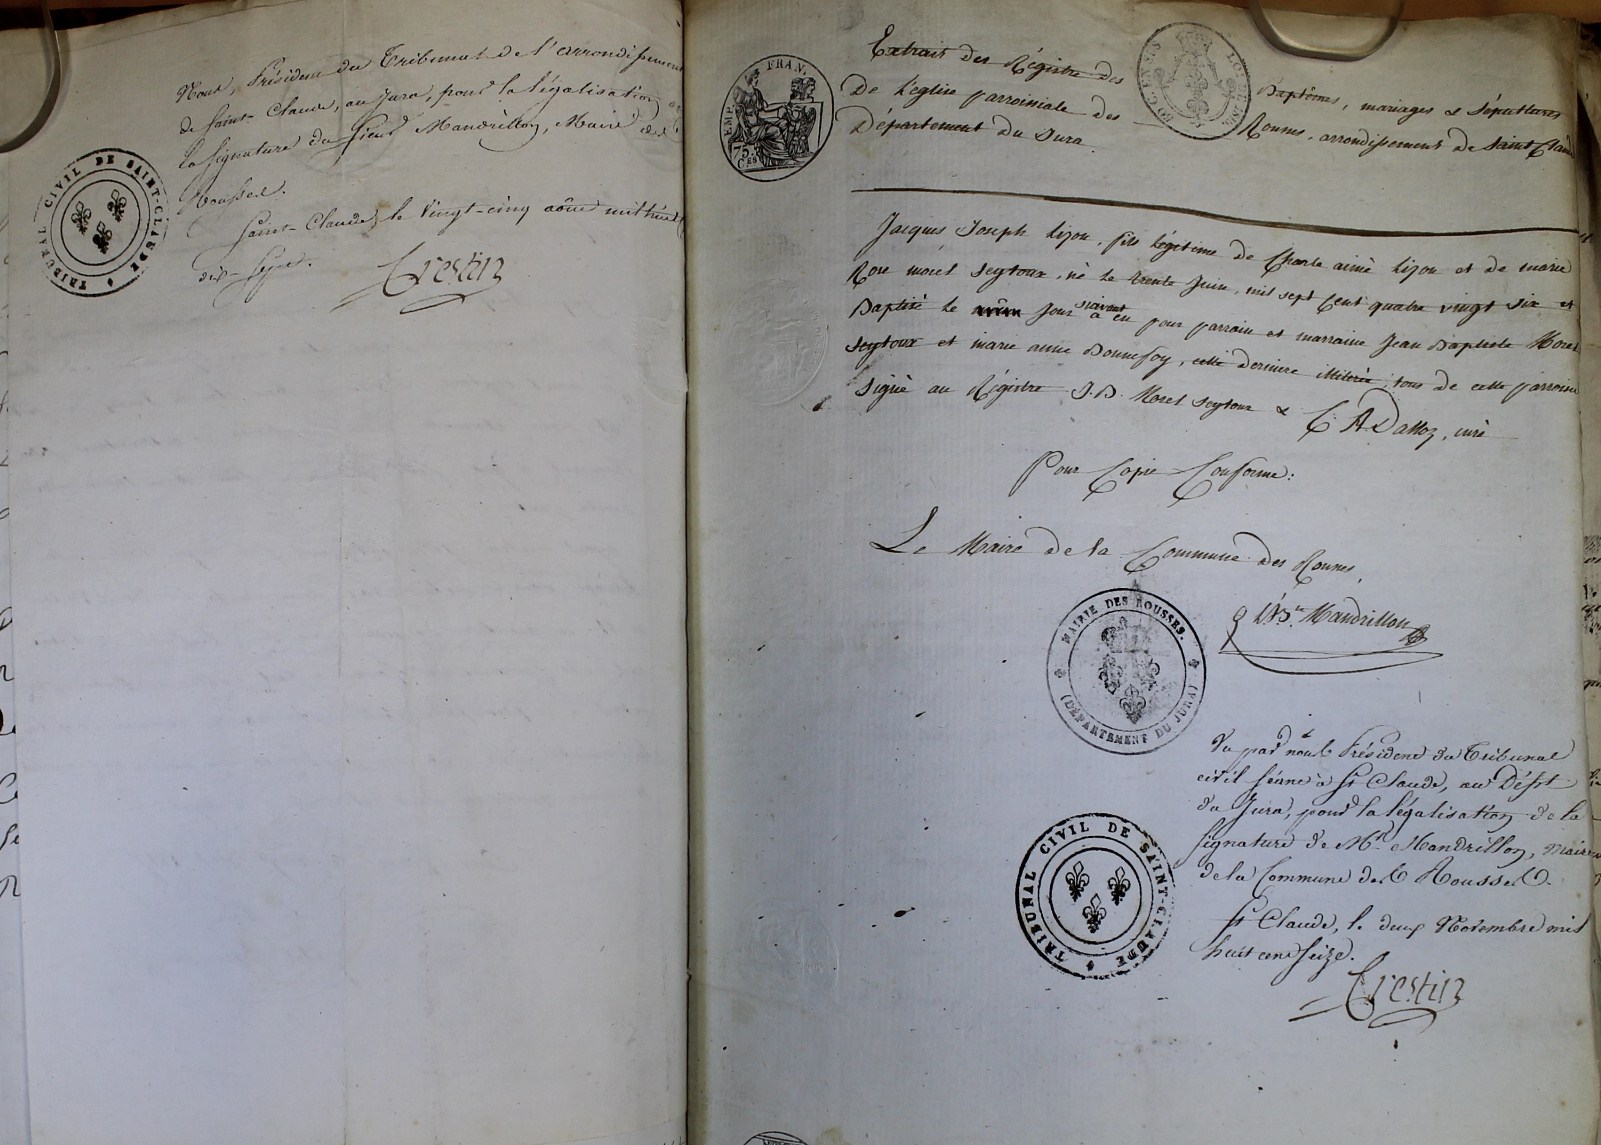 Nous, Président du Tribunal de l'arrondissement
de Saint-Claude, au Jura, pour la légalisation de
la signature du sieur Mandrillon, Maire des
Rousses.
Saint-Claude, le vingt-cinq août mil huit
dix-sept.
Crestin
TRIBUNAL CIVIL DE SAINT-CLAUDE
EMP. FRAN.
75.
CES
Extrait des Régistre des Baptêmes, mariages & Sépultures
De l'église parroissiale des Rousses, arrondissement de Saint Claude
Département du Jura.
Jacques Joseph Lizon, fils légitime de Charle aimé Lizon et de marie
Rose morel seytoux, né le trente Juin, mil sept cent quatre vingt six et
Baptisé le même Jour suivant a eu pour parrain et marraine Jean Baptiste Morel
seytoux et marie anne Bonnefoy, cette derniere illiterée, tous de cette parroisse
signé au Régistre J. B. Morel seytoux & C A Dalloz, curé
Pour Copie Conforme:
Le Maire de la Commune des Rousses,
Mandrillon
MAIRIE DES ROUSSES.
(DÉPARTEMENT DU JURA)
Vu par nous Président du Tribunal
civil séant à St Claude, au Dépt
du Jura, pour la légalisation de la
signature de Mr. Mandrillon, Maire
de la Commune des Rousses.
St Claude, le deux Novembre mil
huit cent seize.
Crestin
TRIBUNAL CIVIL DE SAINT-CLAUDE